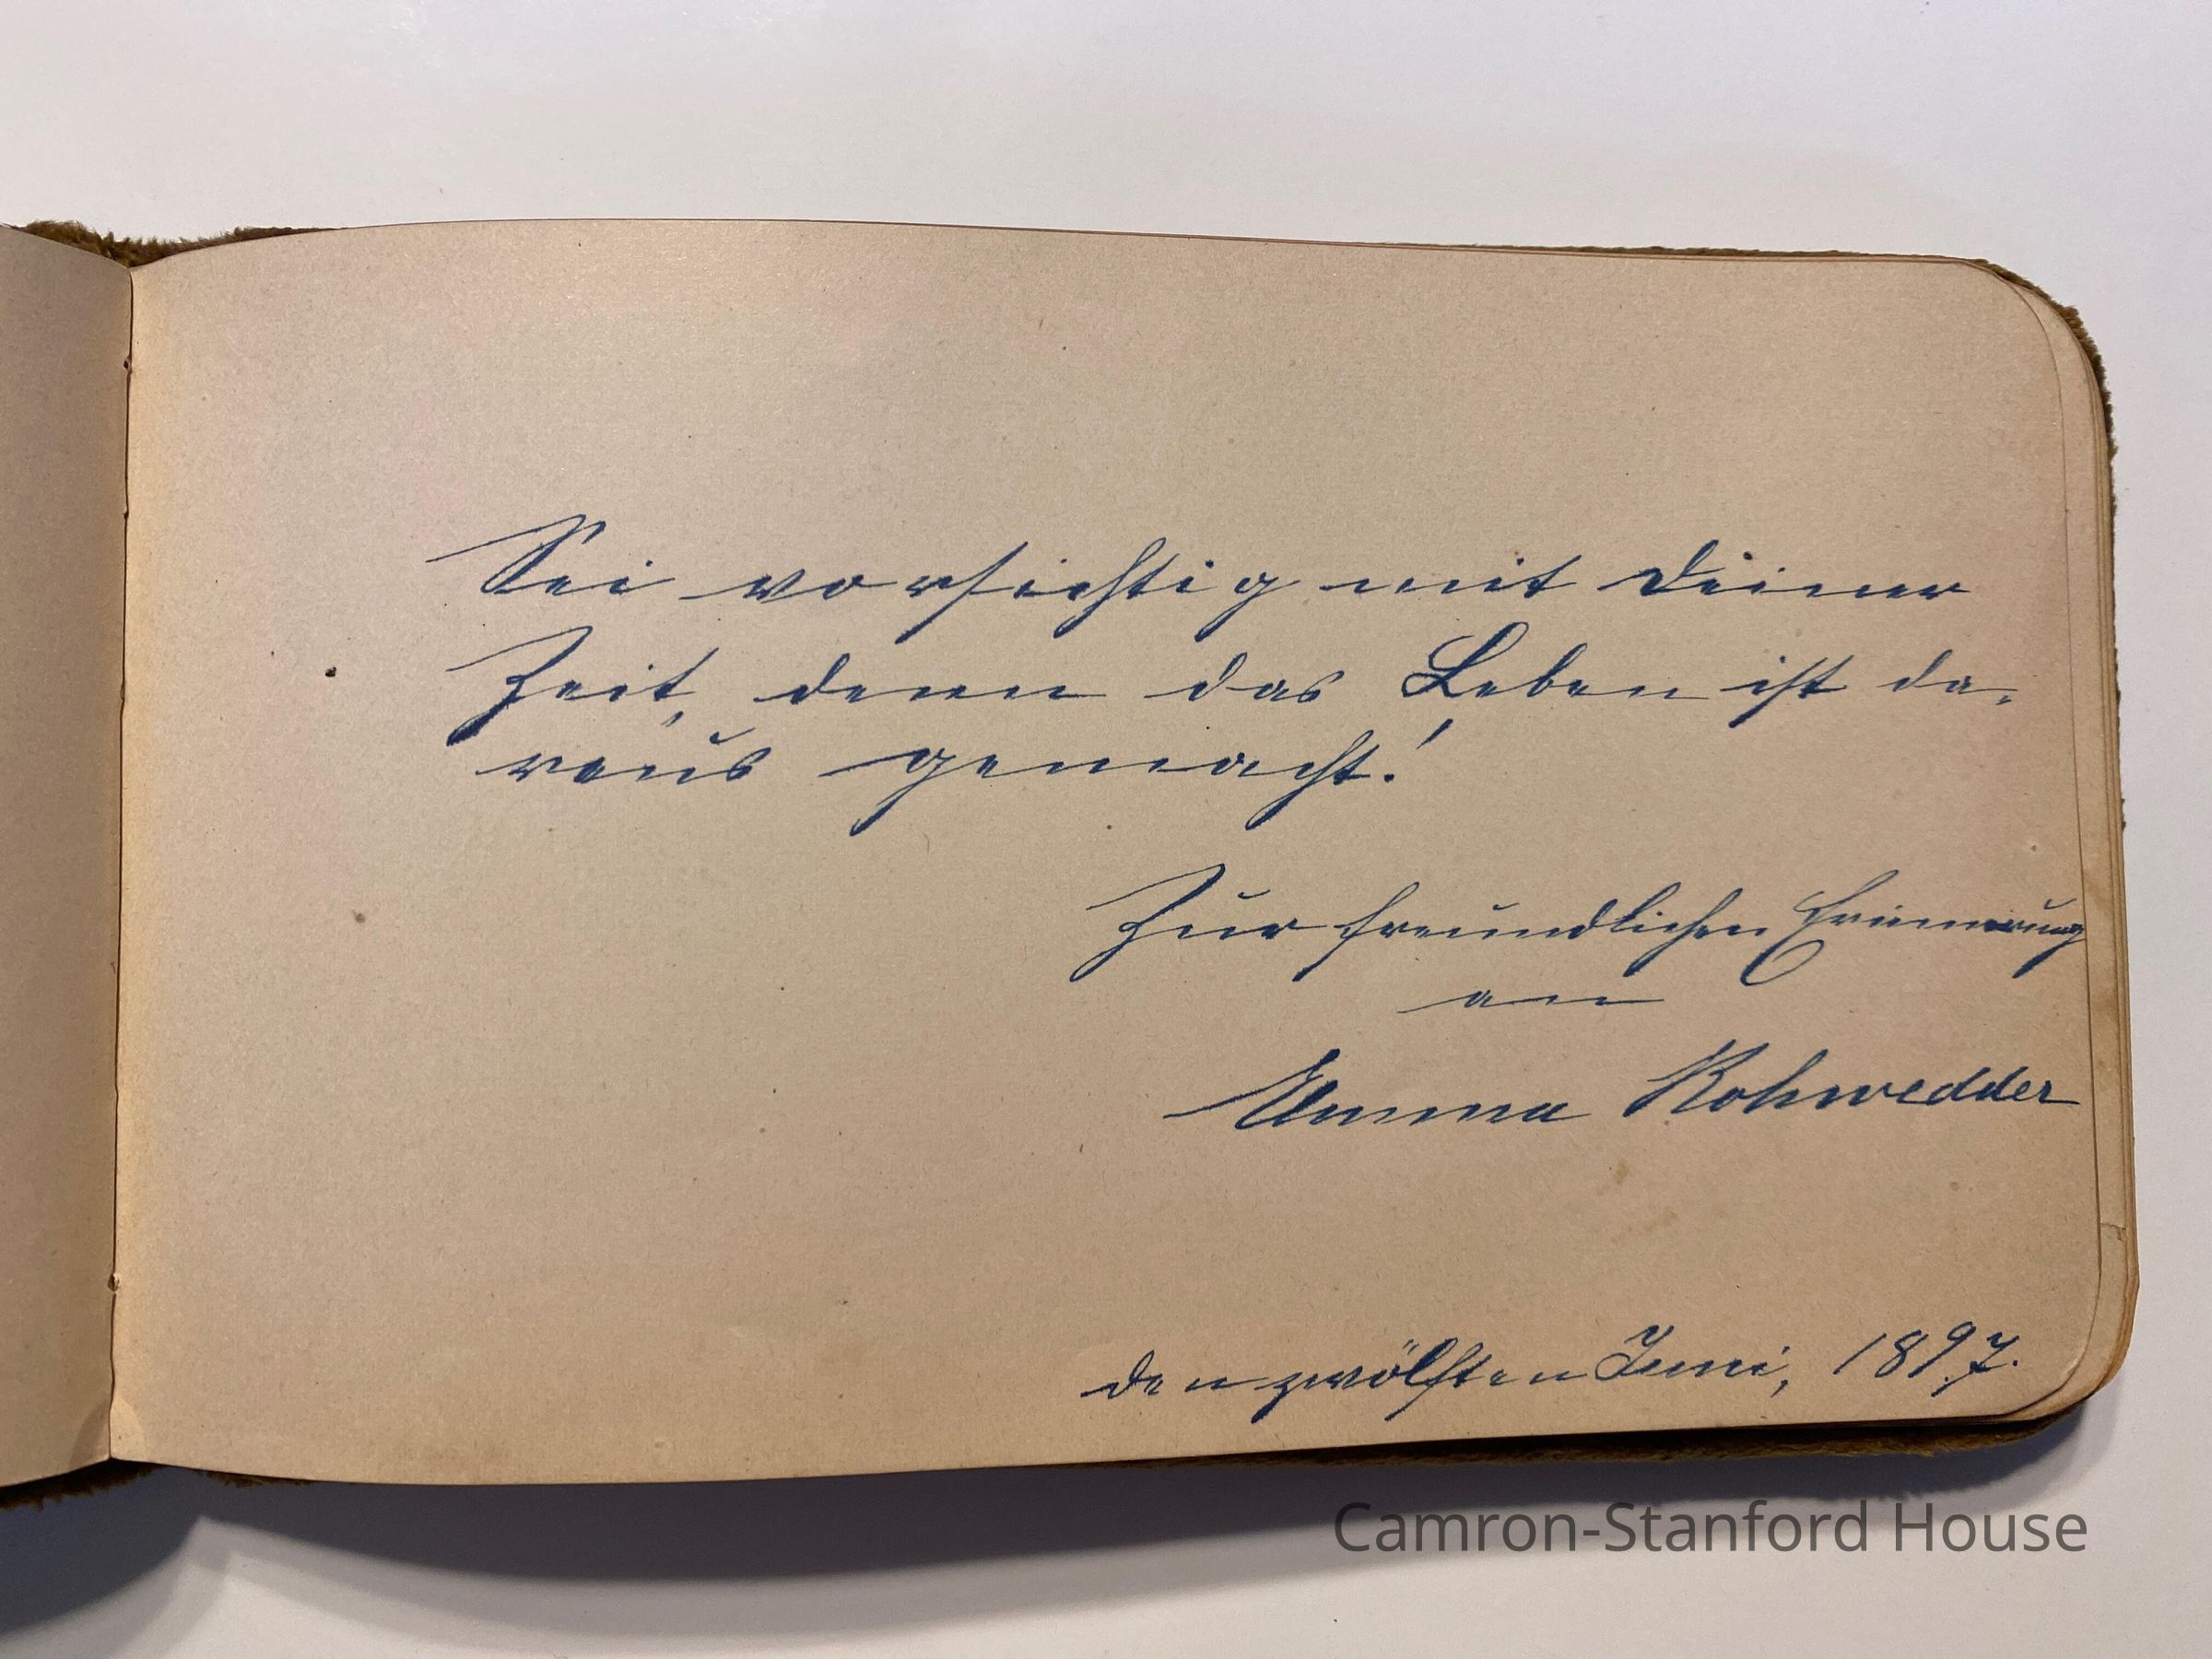 Sei vorsichtig mit deiner
Zeit, denn das Leben ist da-
raus gemacht!
Zur freundlichen Erinnerung
an
Emma Rohwedder
den zwölften Juni, 1897.
Camron-Stanford House